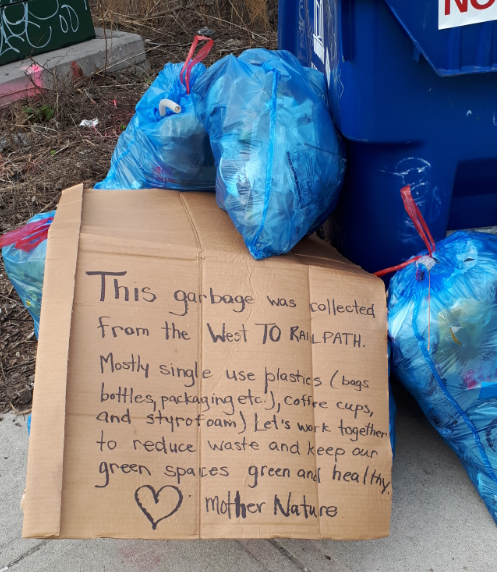 NO
This garbage was collected
from the West TO RAILPATH.
Mostly single use plastics (bags
bottles, packaging etc.), coffee cups,
and styrofoam) Let's work together
to reduce waste and keep our
green spaces green and healthy.
♡ Mother Nature